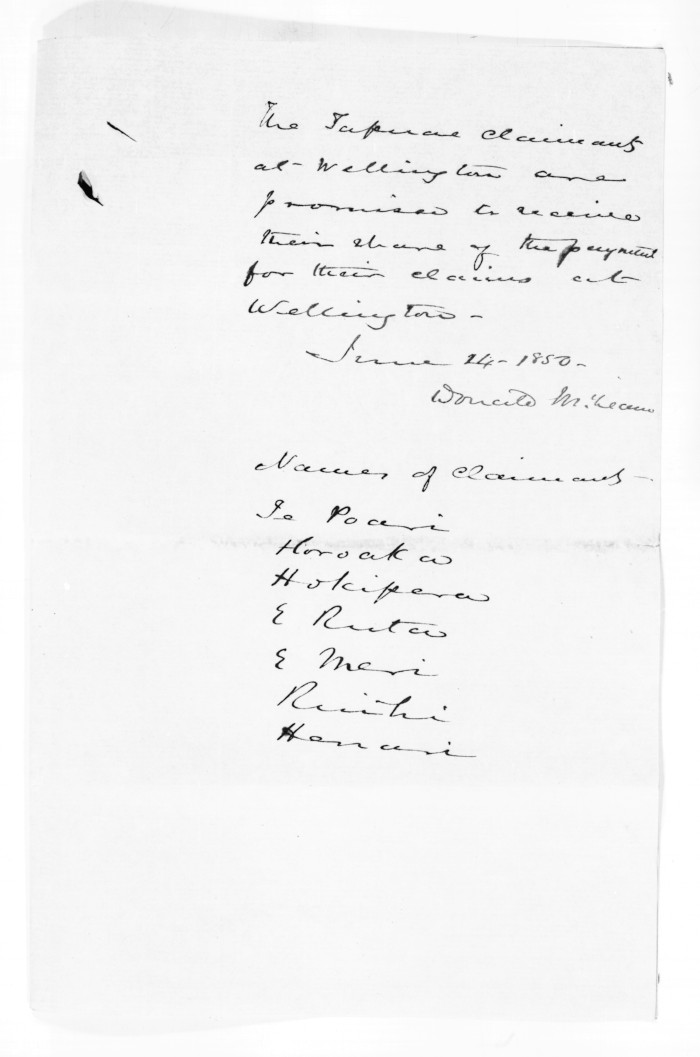 The Tapuae claimants
at Wellington are
promised to receive
their share of the payment
for their claims at
Wellington -
June 24 - 1850 -
Donald McLean
Names of Claimants -
Te Poari
Horoaka
Hokipera
E Ruta
E Meri
Ruihi
Henari